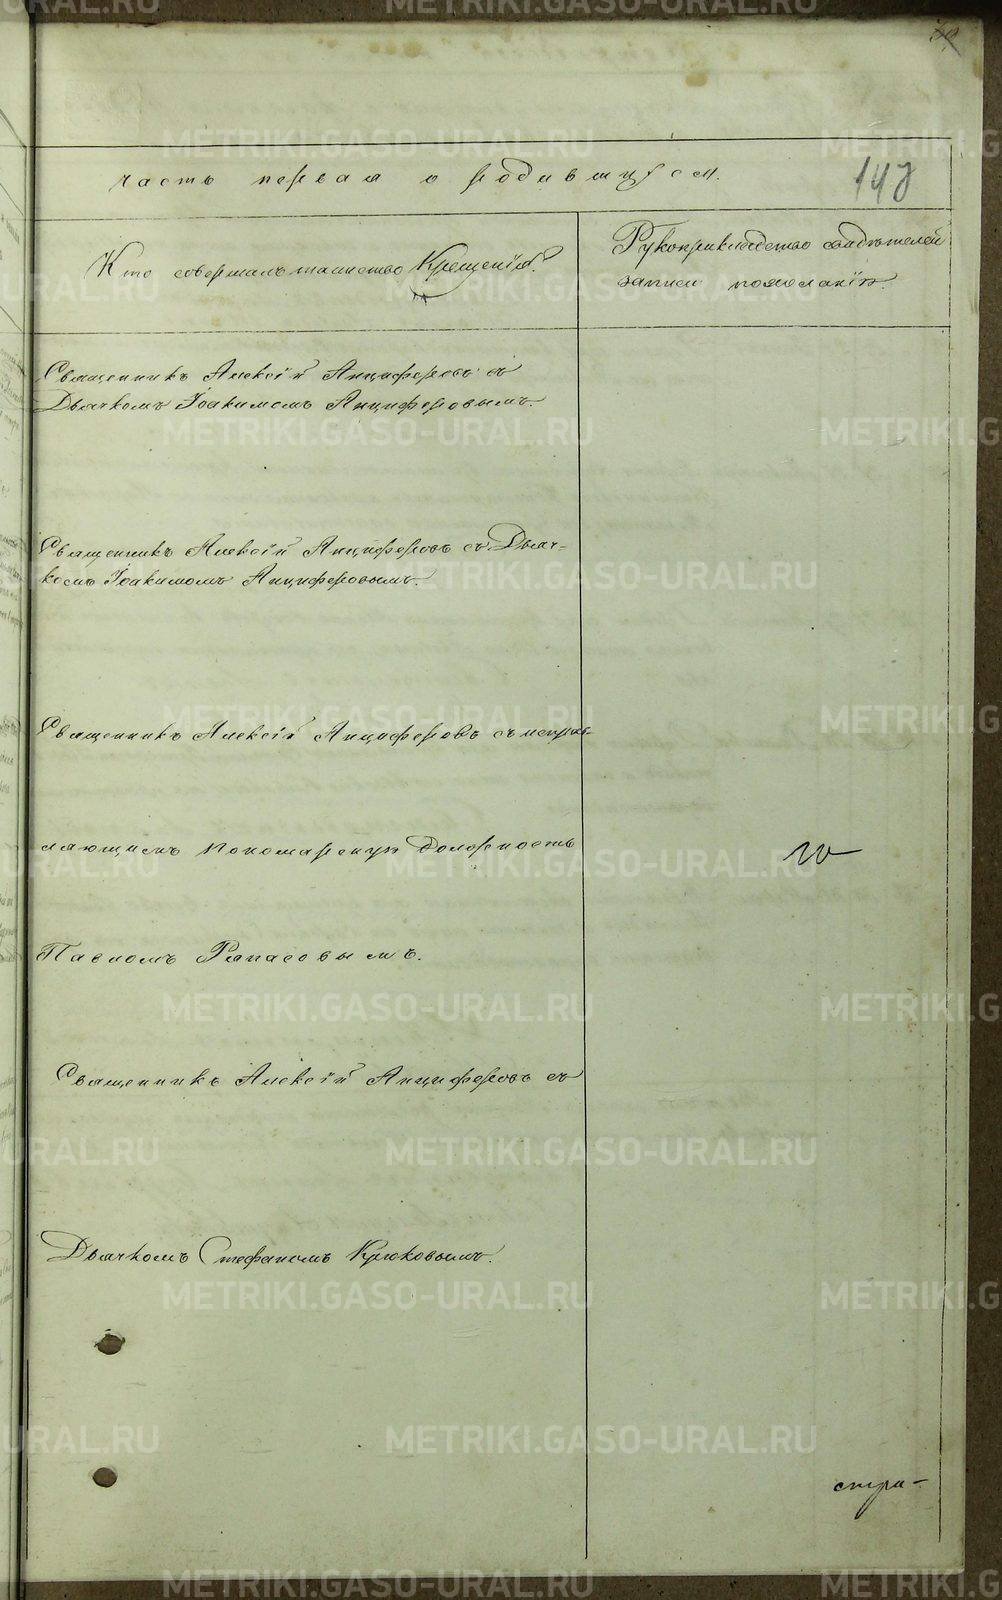 часть первая о родившихся.
Кто совершалъ таинство Крещенія?
Рукоприкладство свидѣтелей
записи по желанію.
Священникъ Алексій Анциферовъ съ
Дьячкомъ Іоакимомъ Анциферовымъ.
Священникъ Алексій Анциферовъ съ Дьяч-
комъ Іоакимомъ Анциферовымъ.
Священникъ Алексій Анциферовъ съ исправ-
ляющимъ пономарскую должность
Павломъ
Священникъ Алексій Анциферовъ съ
Дьячкомъ Стефаномъ Крюковымъ.
METRIKI.GASO-URAL.RU